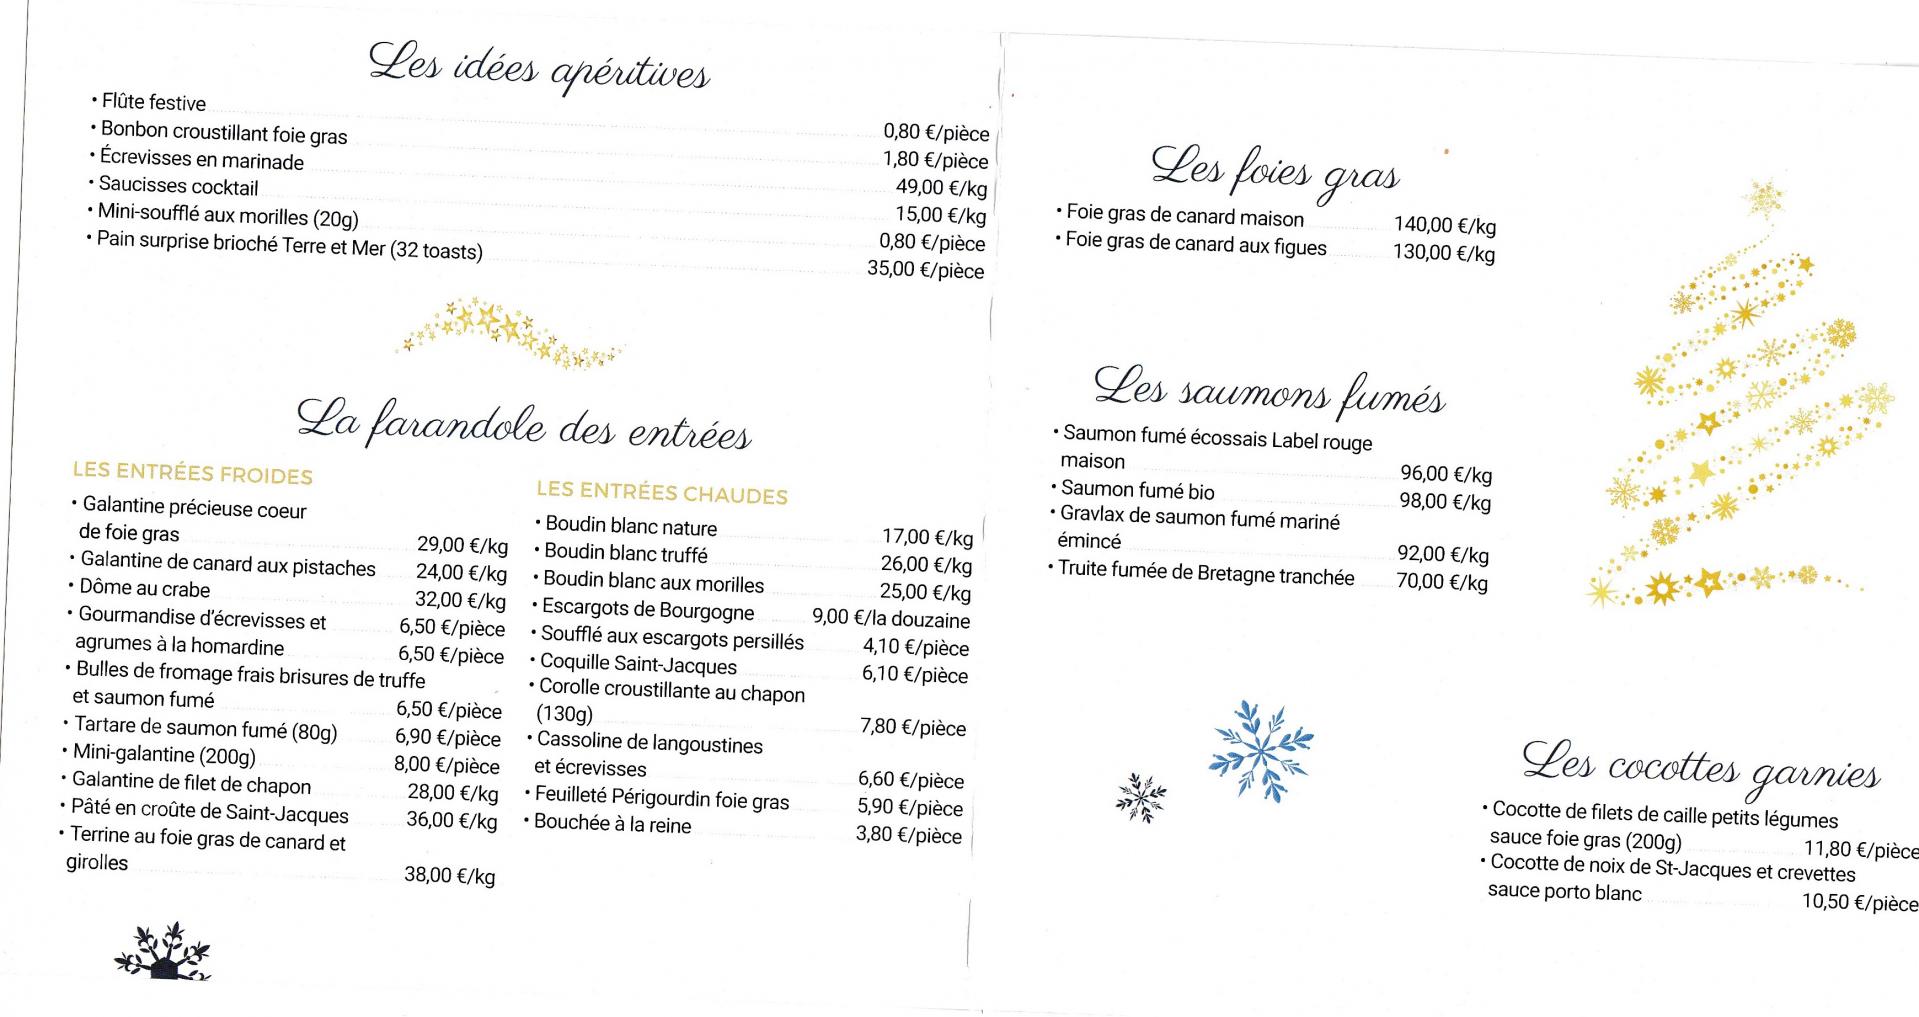 Les idées apéritives
• Flûte festive 0,80 €/pièce
• Bonbon croustillant foie gras 1,80 €/pièce
• Écrevisses en marinade 49,00 €/kg
• Saucisses cocktail 15,00 €/kg
• Mini-soufflé aux morilles (20g) 0,80 €/pièce
• Pain surprise brioché Terre et Mer (32 toasts) 35,00 €/pièce
La farandole des entrées
LES ENTRÉES FROIDES
• Galantine précieuse coeur
de foie gras 29,00 €/kg
• Galantine de canard aux pistaches 24,00 €/kg
• Dôme au crabe 32,00 €/kg
• Gourmandise d'écrevisses et 6,50 €/pièce
agrumes à la homardine 6,50 €/pièce
• Bulles de fromage frais brisures de truffe
et saumon fumé 6,50 €/pièce
• Tartare de saumon fumé (80g) 6,90 €/pièce
• Mini-galantine (200g) 8,00 €/pièce
• Galantine de filet de chapon 28,00 €/kg
• Pâté en croûte de Saint-Jacques 36,00 €/kg
• Terrine au foie gras de canard et
girolles 38,00 €/kg
LES ENTRÉES CHAUDES
• Boudin blanc nature 17,00 €/kg
• Boudin blanc truffé 26,00 €/kg
• Boudin blanc aux morilles 25,00 €/kg
• Escargots de Bourgogne 9,00 €/la douzaine
• Soufflé aux escargots persillés 4,10 €/pièce
• Coquille Saint-Jacques 6,10 €/pièce
• Corolle croustillante au chapon
(130g) 7,80 €/pièce
• Cassoline de langoustines
et écrevisses 6,60 €/pièce
• Feuilleté Périgourdin foie gras 5,90 €/pièce
• Bouchée à la reine 3,80 €/pièce
Les foies gras
• Foie gras de canard maison 140,00 €/kg
• Foie gras de canard aux figues 130,00 €/kg
Les saumons fumés
• Saumon fumé écossais Label rouge
maison 96,00 €/kg
• Saumon fumé bio 98,00 €/kg
• Gravlax de saumon fumé mariné
émincé 92,00 €/kg
• Truite fumée de Bretagne tranchée 70,00 €/kg
Les cocottes garnies
• Cocotte de filets de caille petits légumes
sauce foie gras (200g) 11,80 €/pièce
• Cocotte de noix de St-Jacques et crevettes
sauce porto blanc 10,50 €/pièce